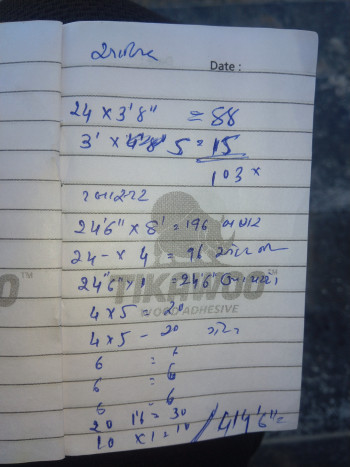 Date :
24 x 3'8" = 88
3' x 5 = 15
103 x
24'6" x 8' = 196
24 - x 4 = 96
24'6" x 1 = 24'6"
TIKAWOO
WOOD ADHESIVE
4 x 5 = 20
4 x 5 - 20
6 = 6
6 = 6
6 = 6
20 1'6 = 30
10 x 1 = 10 / 414'6" =